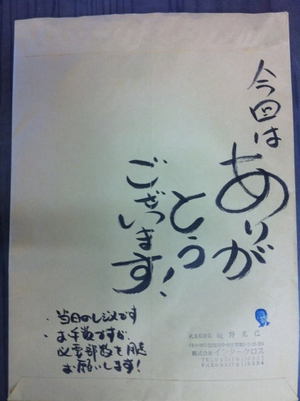 今回は
ありが
とう
ございます!
・当日のレジメです
・お手数ですが、
必要部数を用意
お願いします!
株式会社 インタークロス